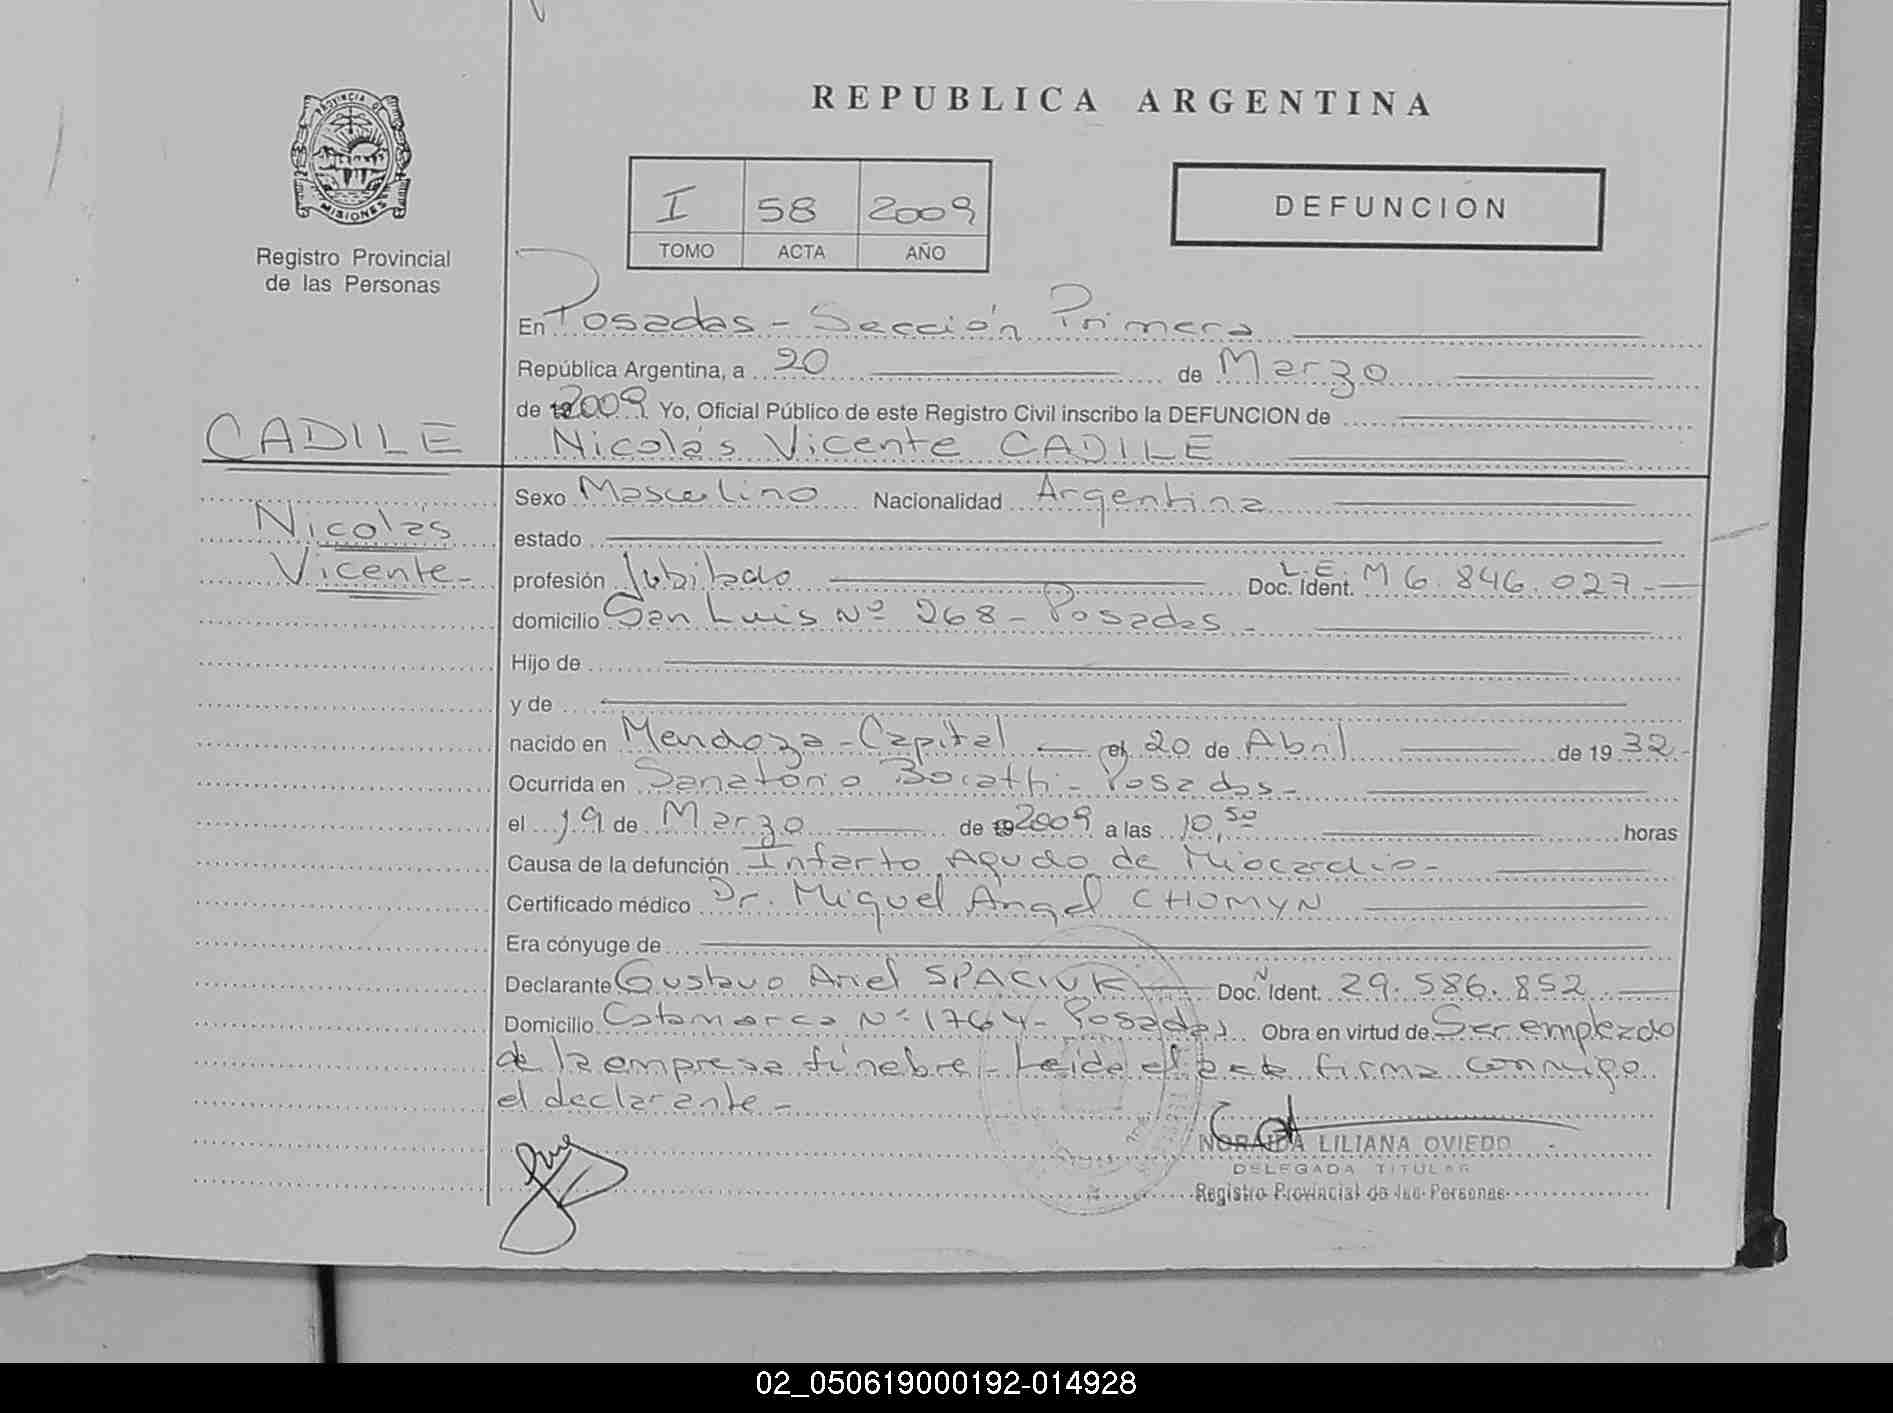 REPUBLICA ARGENTINA
PROVINCIA DE
MISIONES
Registro Provincial
de las Personas
I 58 2009
TOMO ACTA AÑO
DEFUNCION
En Posadas - Sección Primera
República Argentina, a 20 de Marzo
de 2009 Yo, Oficial Público de este Registro Civil inscribo la DEFUNCION de
CADILE
Nicolás Vicente CADILE
Nicolás
Vicente-
Sexo Masculino Nacionalidad Argentina
estado
profesión Jubilado Doc. Ident. L.E. M 6.846.027-
domicilio San Luis Nº 268 - Posadas -
Hijo de
y de
nacido en Mendoza - Capital el 20 de Abril de 1932-
Ocurrida en Sanatorio Boratti - Posadas -
el 19 de Marzo de 2009 a las 10,50 horas
Causa de la defunción Infarto Agudo de Miocardio-
Certificado médico Dr. Miguel Angel CHOMYN
Era cónyuge de
Declarante Gustavo Ariel SPACIUK Doc. N Ident. 29.586.852
Domicilio Catamarca Nº 1764 - Posadas Obra en virtud de Ser empleado
de la empresa fúnebre - Leída el acta firma conmigo
el declarante -
NORAIDA LILIANA OVIEDO
DELEGADA TITULAR
Registro Provincial de las Personas
02_050619000192-014928